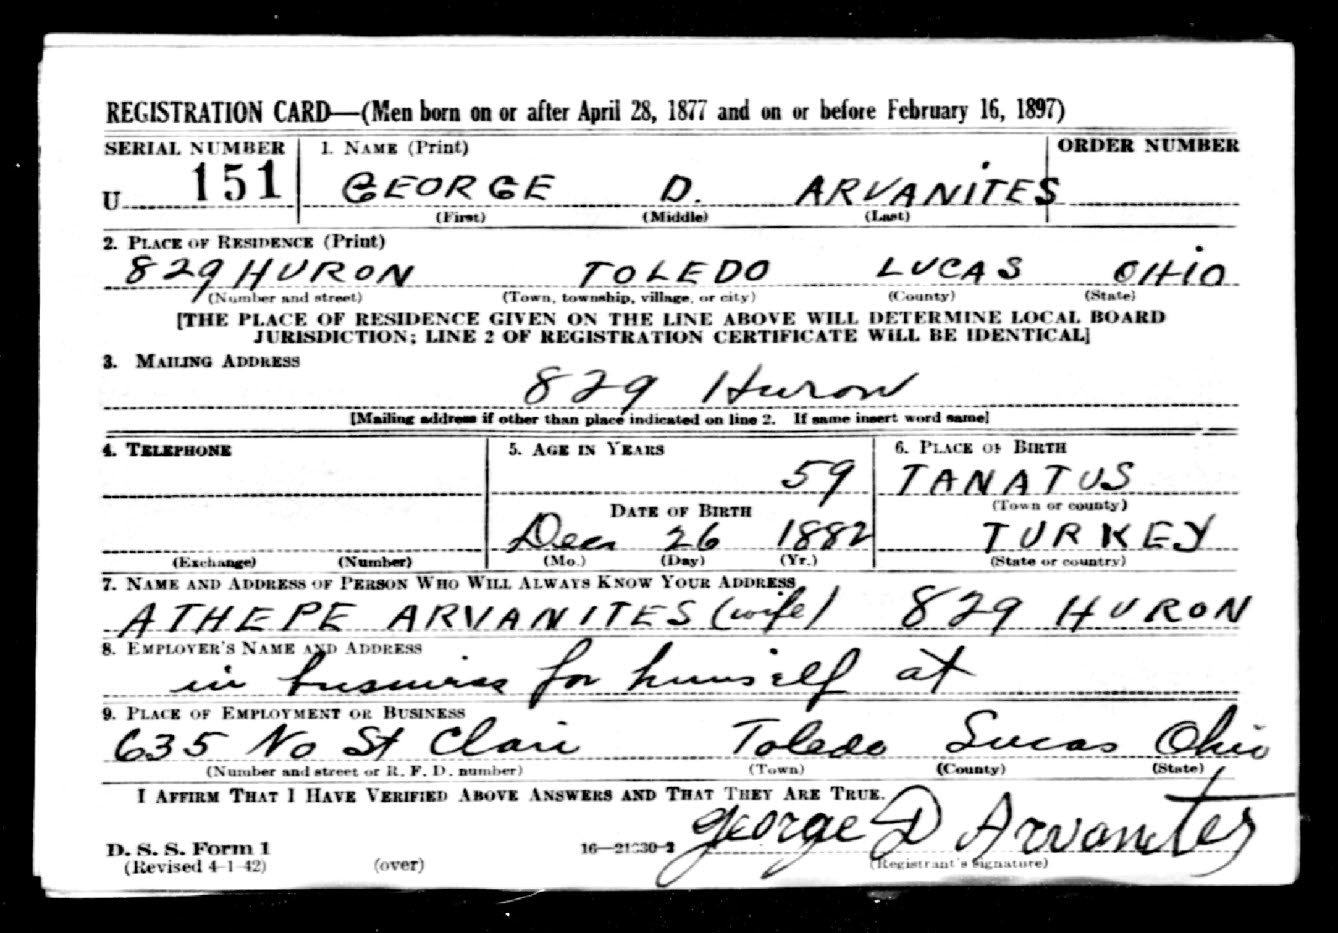 REGISTRATION CARD—(Men born on or after April 28, 1877 and on or before February 16, 1897)
SERIAL NUMBER 1. NAME (Print) ORDER NUMBER
U 151 GEORGE D. ARVANITES
(First) (Middle) (Last)
2. PLACE OF RESIDENCE (Print)
829 HURON TOLEDO LUCAS OHIO
(Number and street) (Town, township, village, or city) (County) (State)
[THE PLACE OF RESIDENCE GIVEN ON THE LINE ABOVE WILL DETERMINE LOCAL BOARD
JURISDICTION; LINE 2 OF REGISTRATION CERTIFICATE WILL BE IDENTICAL]
3. MAILING ADDRESS
829 Huron
[Mailing address if other than place indicated on line 2. If same insert word same]
4. TELEPHONE 5. AGE IN YEARS 6. PLACE OF BIRTH
59 TANATUS
DATE OF BIRTH (Town or county)
Dec 26 1882 TURKEY
(Exchange) (Number) (Mo.) (Day) (Yr.) (State or country)
7. NAME AND ADDRESS OF PERSON WHO WILL ALWAYS KNOW YOUR ADDRESS
ATHEPE ARVANITES (wife) 829 HURON
8. EMPLOYER'S NAME AND ADDRESS
in business for himself at
9. PLACE OF EMPLOYMENT OR BUSINESS
635 No St Clair Toledo Lucas Ohio
(Number and street or R. F. D. number) (Town) (County) (State)
I AFFIRM THAT I HAVE VERIFIED ABOVE ANSWERS AND THAT THEY ARE TRUE.
George D Arvanites
D. S. S. Form 1 16—21630-2
(Revised 4-1-42) (over) (Registrant's signature)